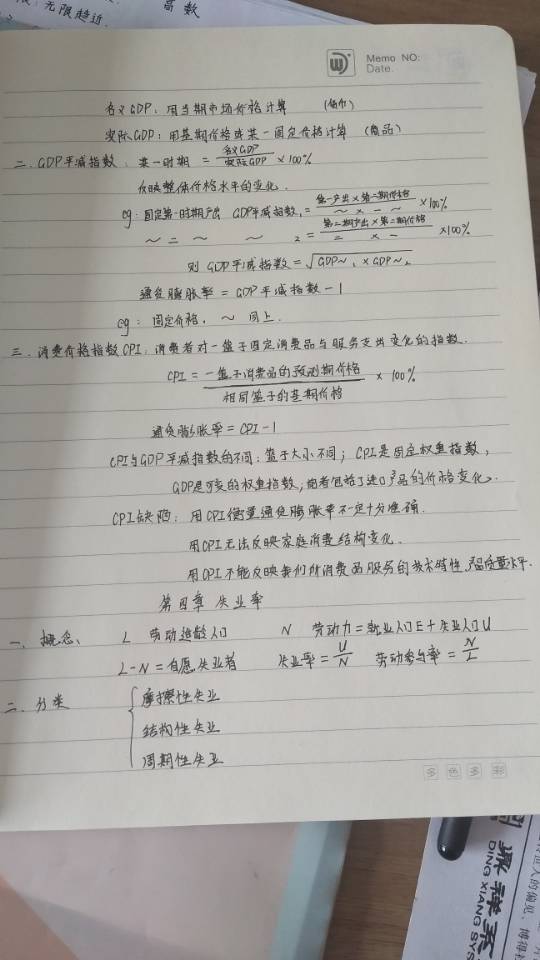 无限趋近
函数
Memo NO:
Date.
名义GDP：用当期市场价格计算 （货币）
实际GDP：用基期价格或某一固定价格计算 （商品）
二、GDP平减指数：某一时期 = 名义GDP / 实际GDP ×100%
反映整体价格水平的变化.
eg：固定第一时期产出 GDP平减指数₁ = 第一产出×第二期价格 / ～ × 一 ～ ×100%
～ 二 ～ ～ ₂ = 第二期产出×第二期价格 / 二 × 一 ×100%
则 GDP平减指数 = √GDP～₁ × GDP～₂
通货膨胀率 = GDP平减指数 － 1
eg：固定价格，～ 同上.
三、消费价格指数CPI：消费者对一篮子固定消费品与服务支出变化的指数.
CPI = 一篮子消费品的预测期价格 / 相同篮子的基期价格 × 100%
通货膨胀率 = CPI－1
CPI与GDP平减指数的不同：篮子大小不同；CPI是固定权重指数，
GDP是可变的权重指数；前者包括了进口产品的价格变化.
CPI缺陷：用CPI衡量通货膨胀率不一定十分准确.
用CPI无法反映家庭消费结构变化.
用CPI不能反映我们所消费品服务的技术特性、产品质量水平.
第四章 失业率
一、概念、 L 劳动适龄人口 N 劳动力=就业人口E+失业人口U
L-N=自愿失业者 失业率=U/N 劳动参与率=N/L
二、分类 摩擦性失业
结构性失业
周期性失业
多色多彩
DING XIANG SYS